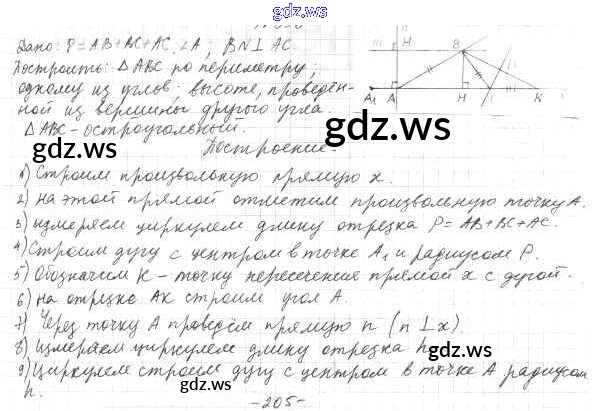 gdz.ws
Дано: P=AB+BC+AC, ∠A; BN⊥AC.
Построить: △ABC по периметру,
одному из углов; высоте, проведён-
ной из вершины другого угла.
△ABC - остроугольный.
m H B
A₁ A H C K
gdz.ws gdz.ws
Построение:
1) Строим произвольную прямую x.
2) на этой прямой отметим произвольную точку A.
3) измеряем циркулем длину отрезка P=AB+BC+AC.
4) Строим дугу с центром в точке A₁ и радиусом P.
5) Обозначим K - точку пересечения прямой x с дугой.
6) на отрезке AK строим угол A.
7) Через точку A проведём прямую n (n⊥x).
8) измеряем циркулем длину отрезка h
9) Циркулем строим дугу с центром в точке A радиусом
h.
gdz.ws gdz.ws
-205-